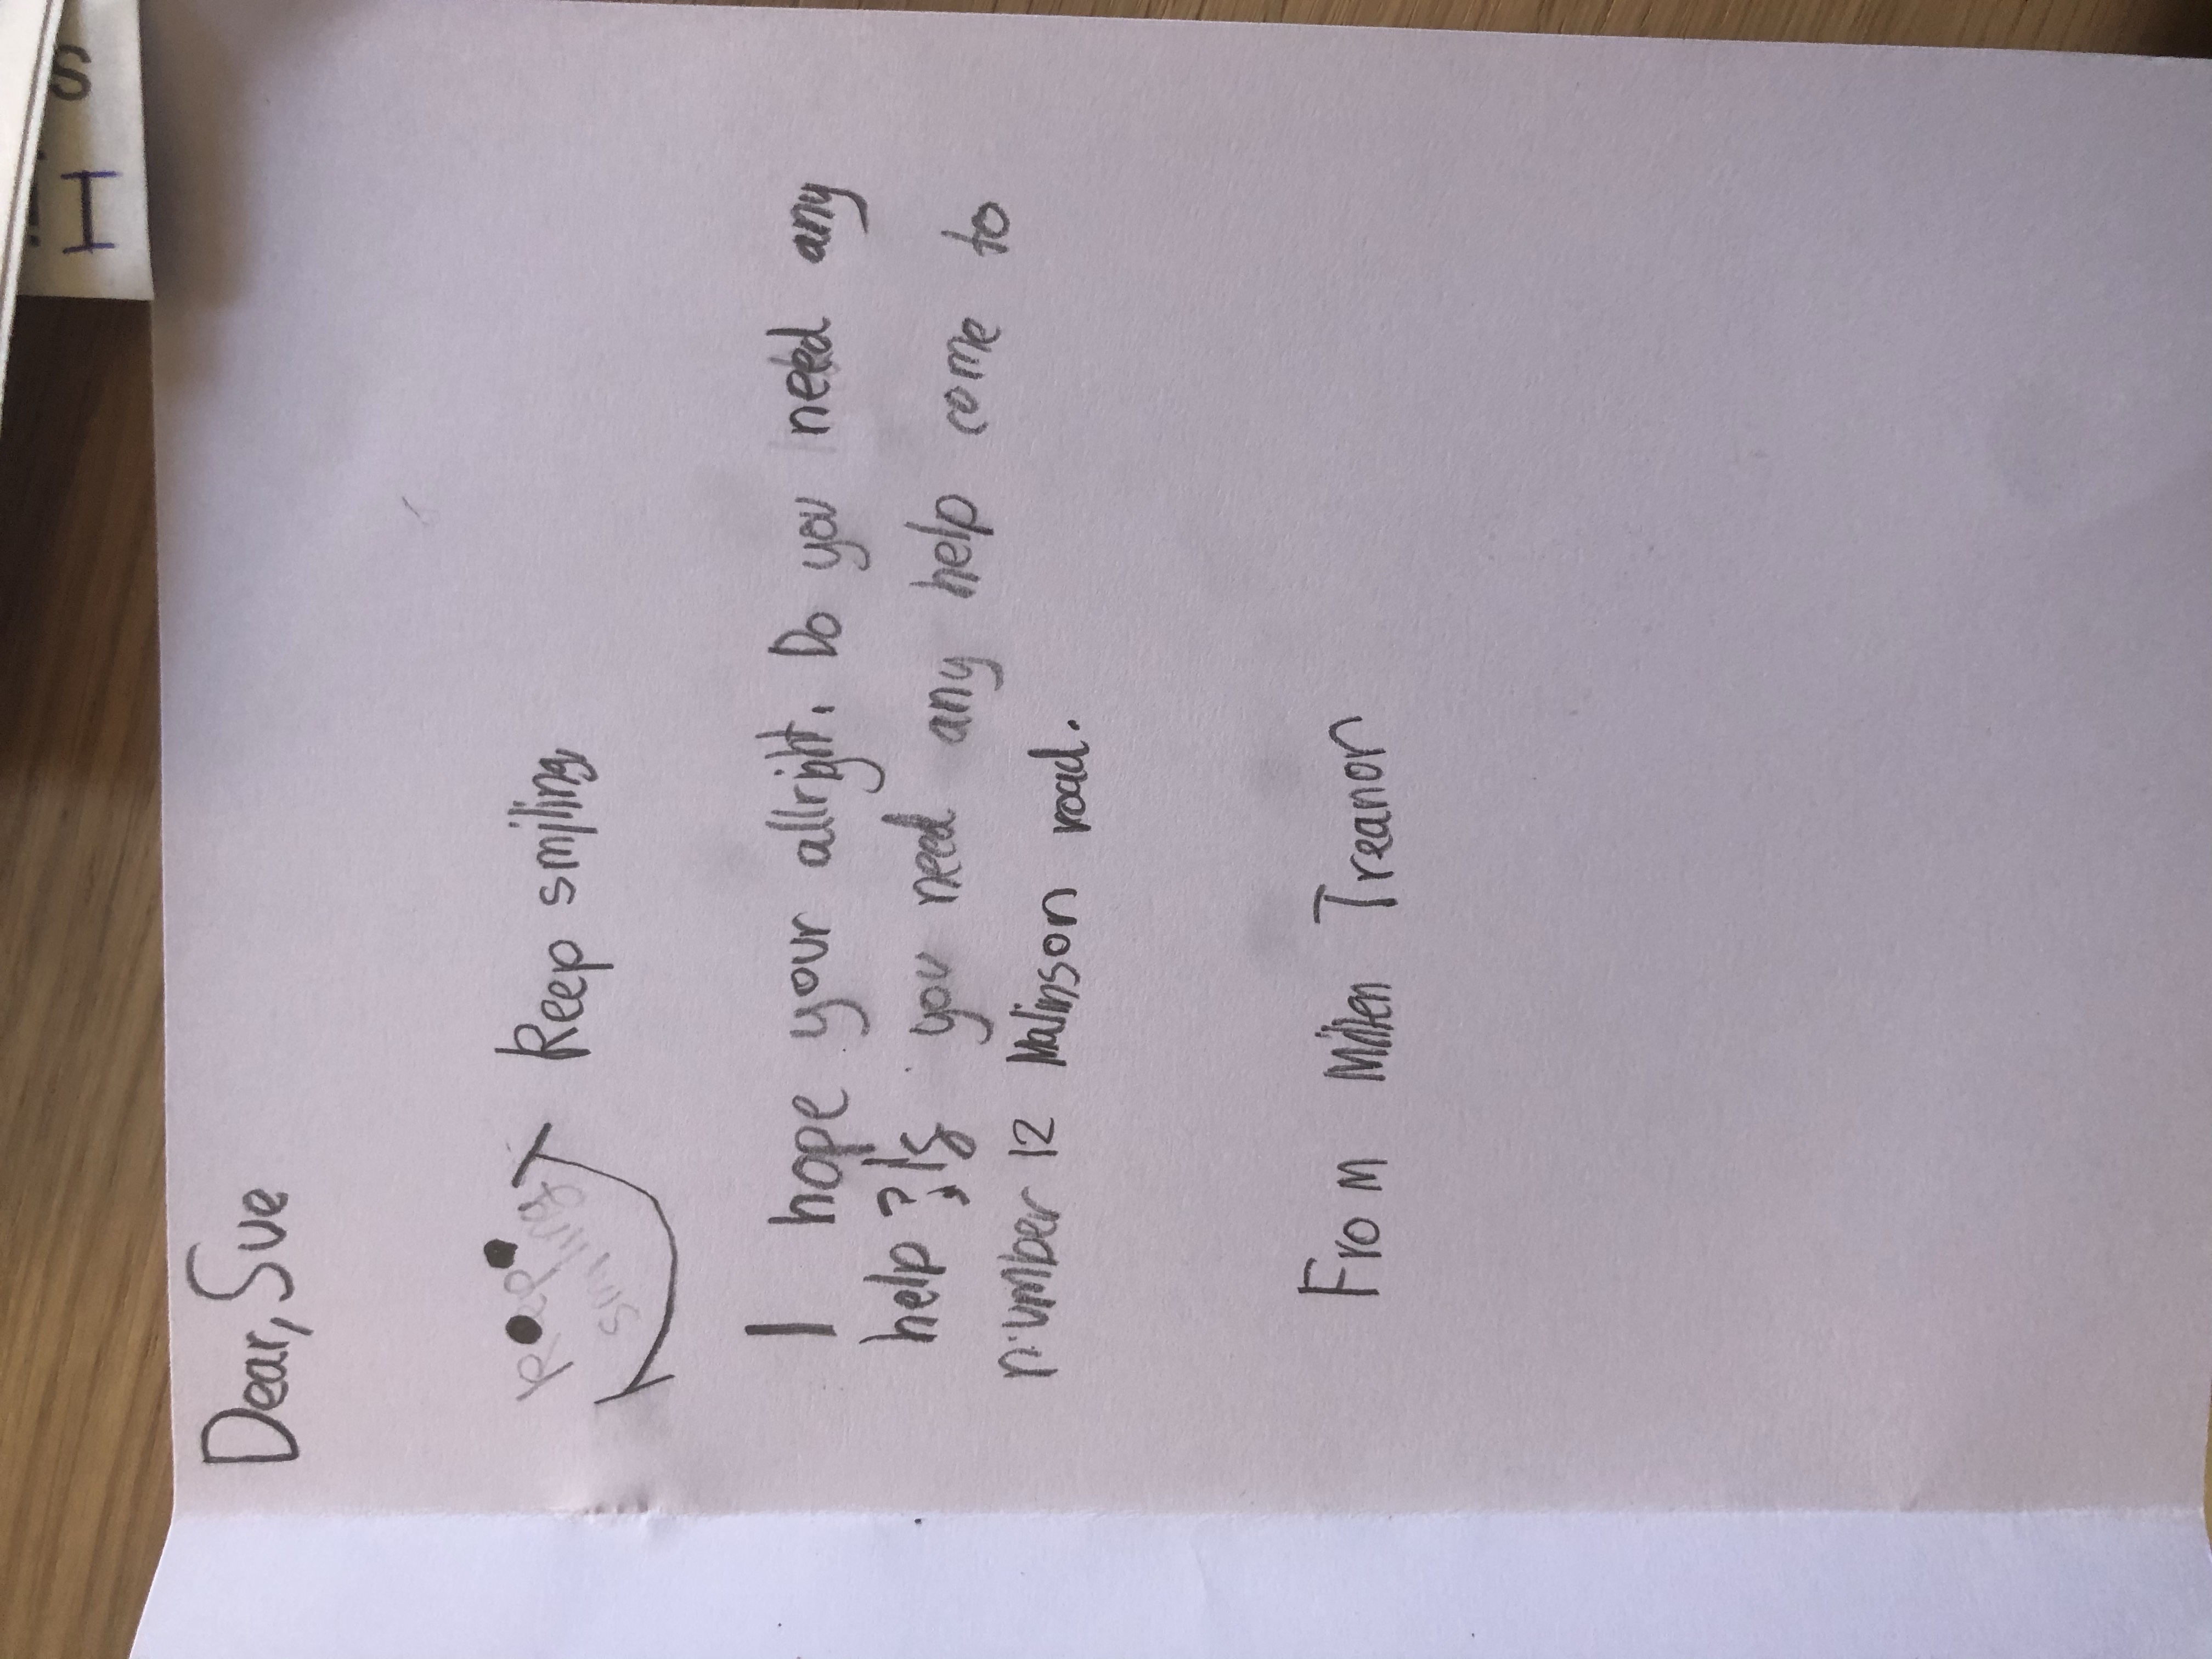 Dear, Sue
Keep smiling
Keep smiling
I hope your allright. Do you need any
help? If you need any help come to
number 12 Malinson road.
From Millen Treanor